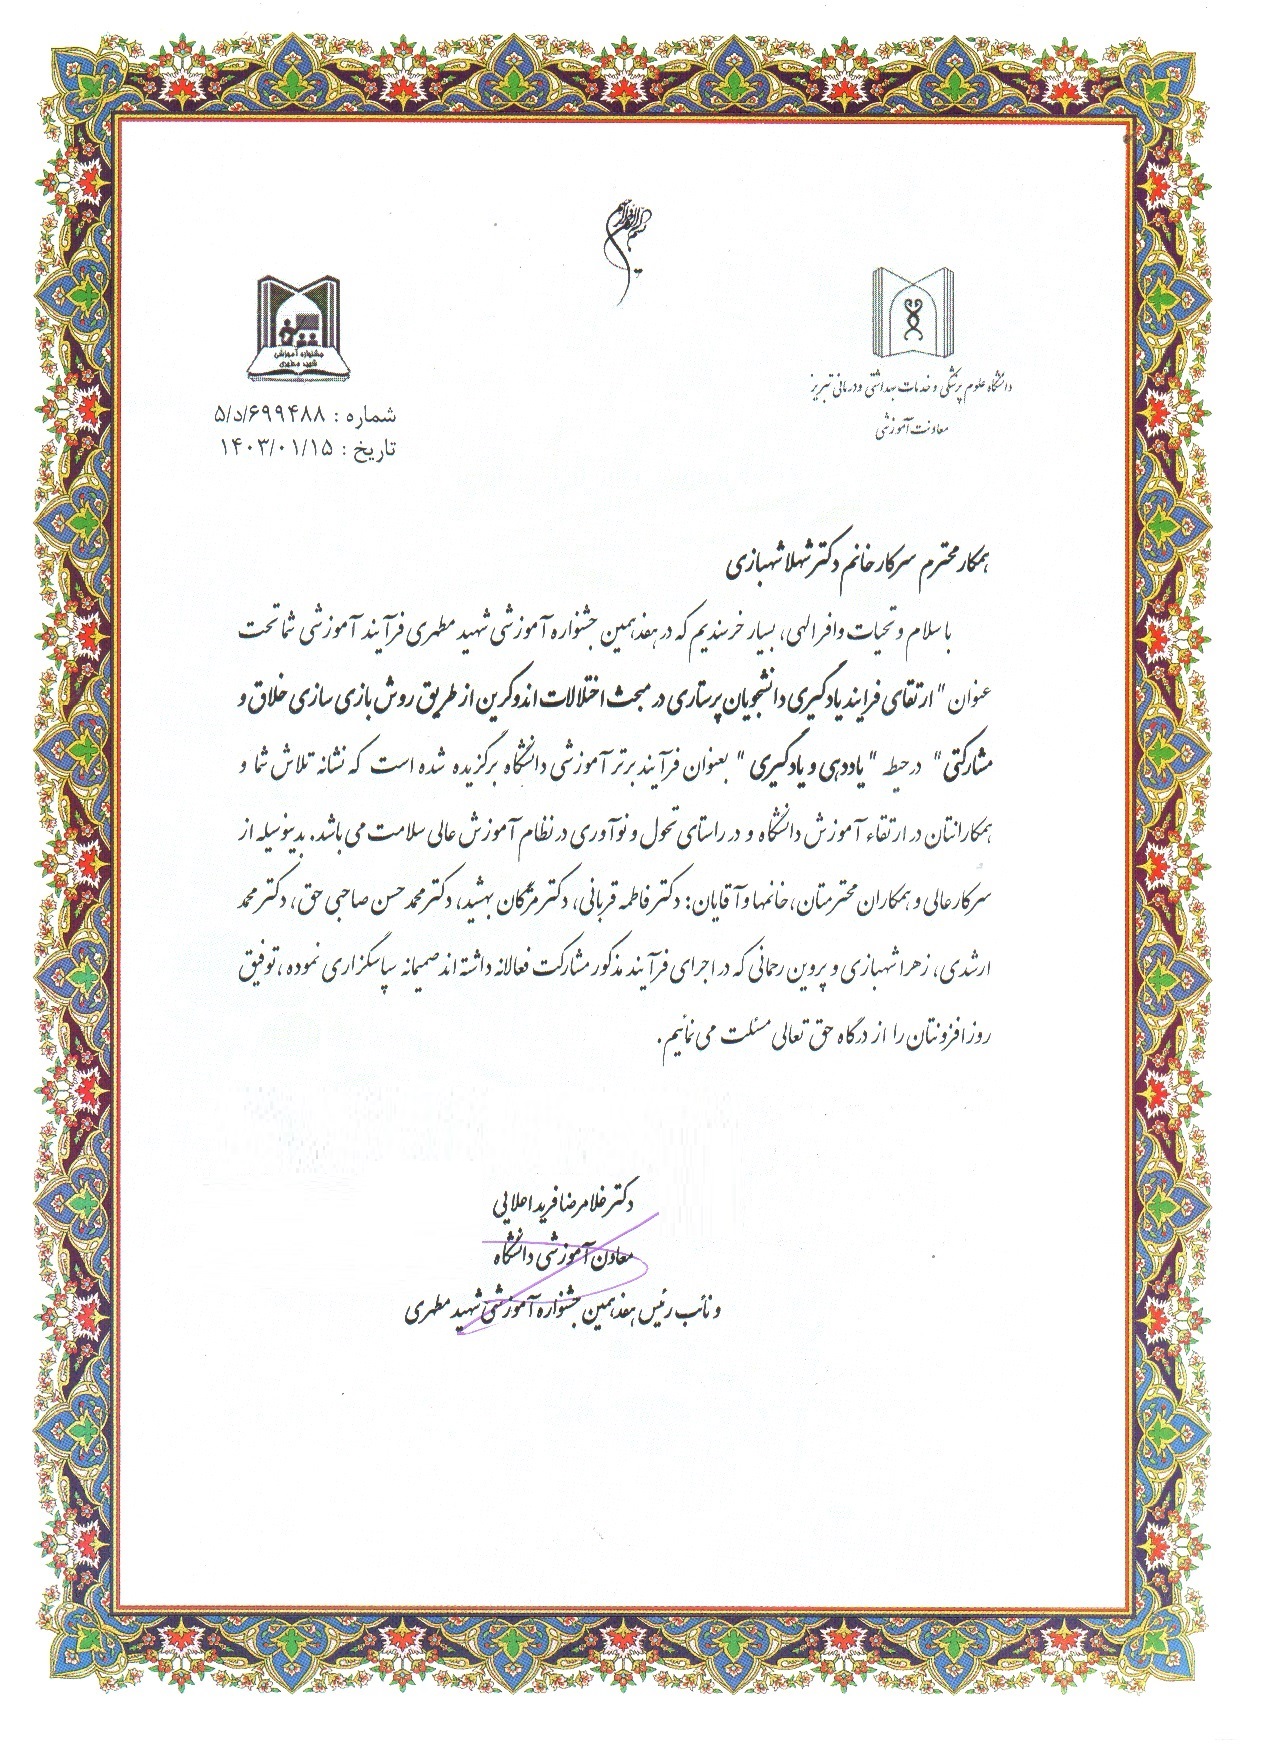 بسم الله الرحمن الرحیم
دانشگاه علوم پزشکی و خدمات بهداشتی و درمانی تبریز
معاونت آموزشی
جشنواره آموزشی
شهید مطهری
شماره : ۵/د/۶۹۹۴۸۸
تاریخ : ۱۴۰۳/۰۱/۱۵
همکار محترم سرکار خانم دکتر شهلا شهبازی
با سلام و تحیات وافر الهی، بسیار خرسندیم که در هفدهمین جشنواره آموزشی شهید مطهری فرآیند آموزشی شما تحت
عنوان "ارتقای فرایند یادگیری دانشجویان پرستاری در مبحث اختلالات اندوکرین از طریق روش بازی سازی خلاق و
مشارکتی" در حیطه "یاددهی و یادگیری" بعنوان فرآیند برتر آموزشی دانشگاه برگزیده شده است که نشانه تلاش شما و
همکارانتان در ارتقاء آموزش دانشگاه و در راستای تحول و نوآوری در نظام آموزش عالی سلامت می باشد. بدینوسیله از
سرکارعالی و همکاران محترمتان، خانمها و آقایان: دکتر فاطمه قربانی، دکتر مژگان بهشید، دکتر محمد حسن صاحبی حق، دکتر محمد
ارشدی، زهرا شهبازی و پروین رحمانی که در اجرای فرآیند مذکور مشارکت فعالانه داشته اند صمیمانه سپاسگزاری نموده، توفیق
روزافزونتان را از درگاه حق تعالی مسئلت می نمائیم.
دکتر غلامرضا فرید اعلایی
معاون آموزشی دانشگاه
و نائب رئیس هفدهمین جشنواره آموزشی شهید مطهری